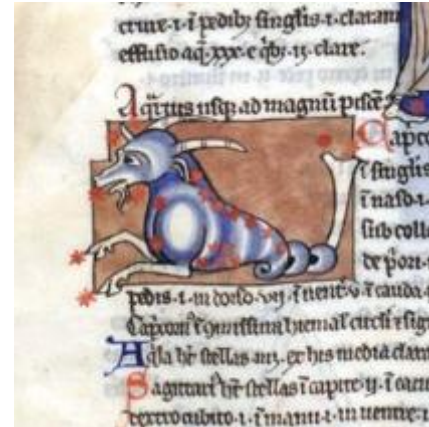 pedibꝫ singlis .i. claram
effusio aq̃ .xxx. e qbꝫ .ij. clare.
usqꝫ ad magnũ pisce
Cap̃co
ĩ singlis
ĩ naso .i.
sub collo
de p̃ori .i.
pedis .i. in dorso .vij. ĩ uent̃ .v. ĩ cauda
hiemal circli
Aq̃la hr̃ stellas .iiij. ex his media clara
Sagittari hr̃ stellas ĩ capite .ij. ĩ cacu
dextro cubito .i. ĩ manu .i. in uentre .i.